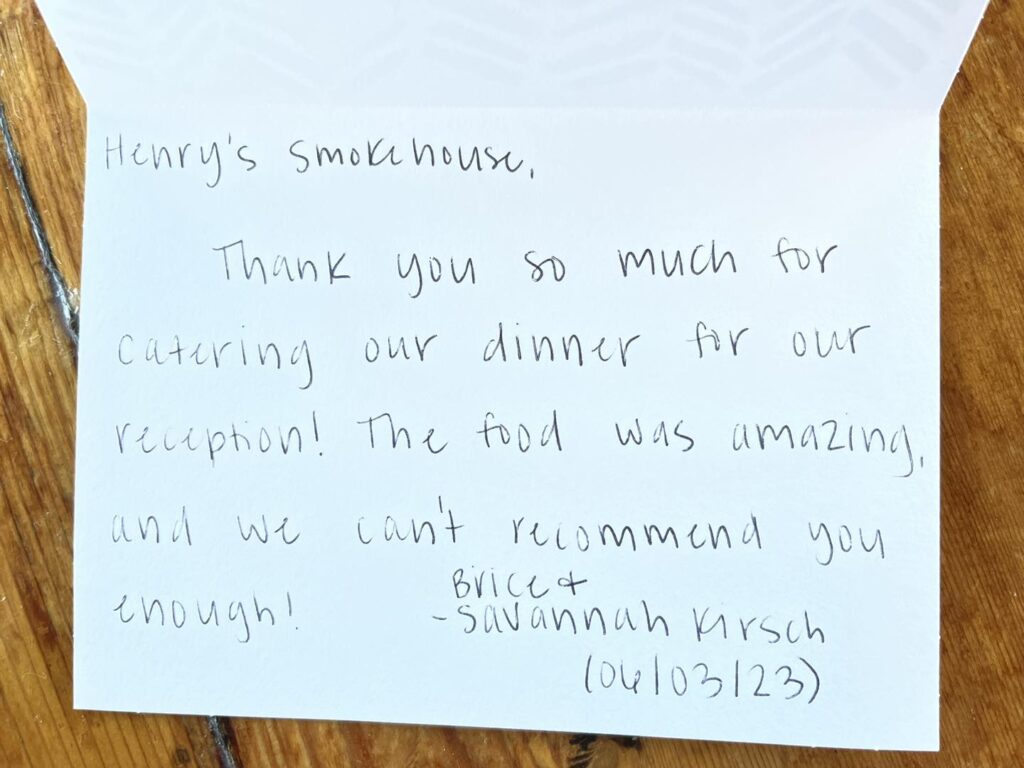 Henry's smokehouse,
Thank you so much for
catering our dinner for our
reception! The food was amazing,
and we can't recommend you
enough!
Brice +
-Savannah Kirsch
(06/03/23)